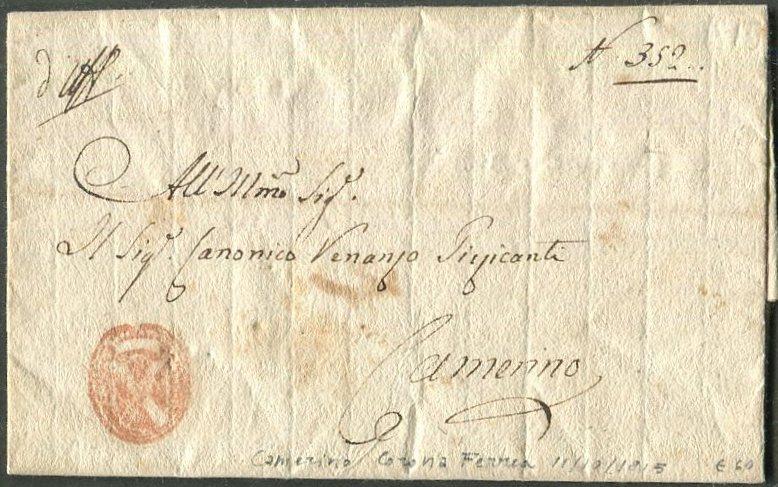 d'Uff.
N 352..
All' Illmo Sig.
Il Sig. Canonico Venanzo
Camerino
Camerino Corona Ferrea 11/10/1815
€ 60